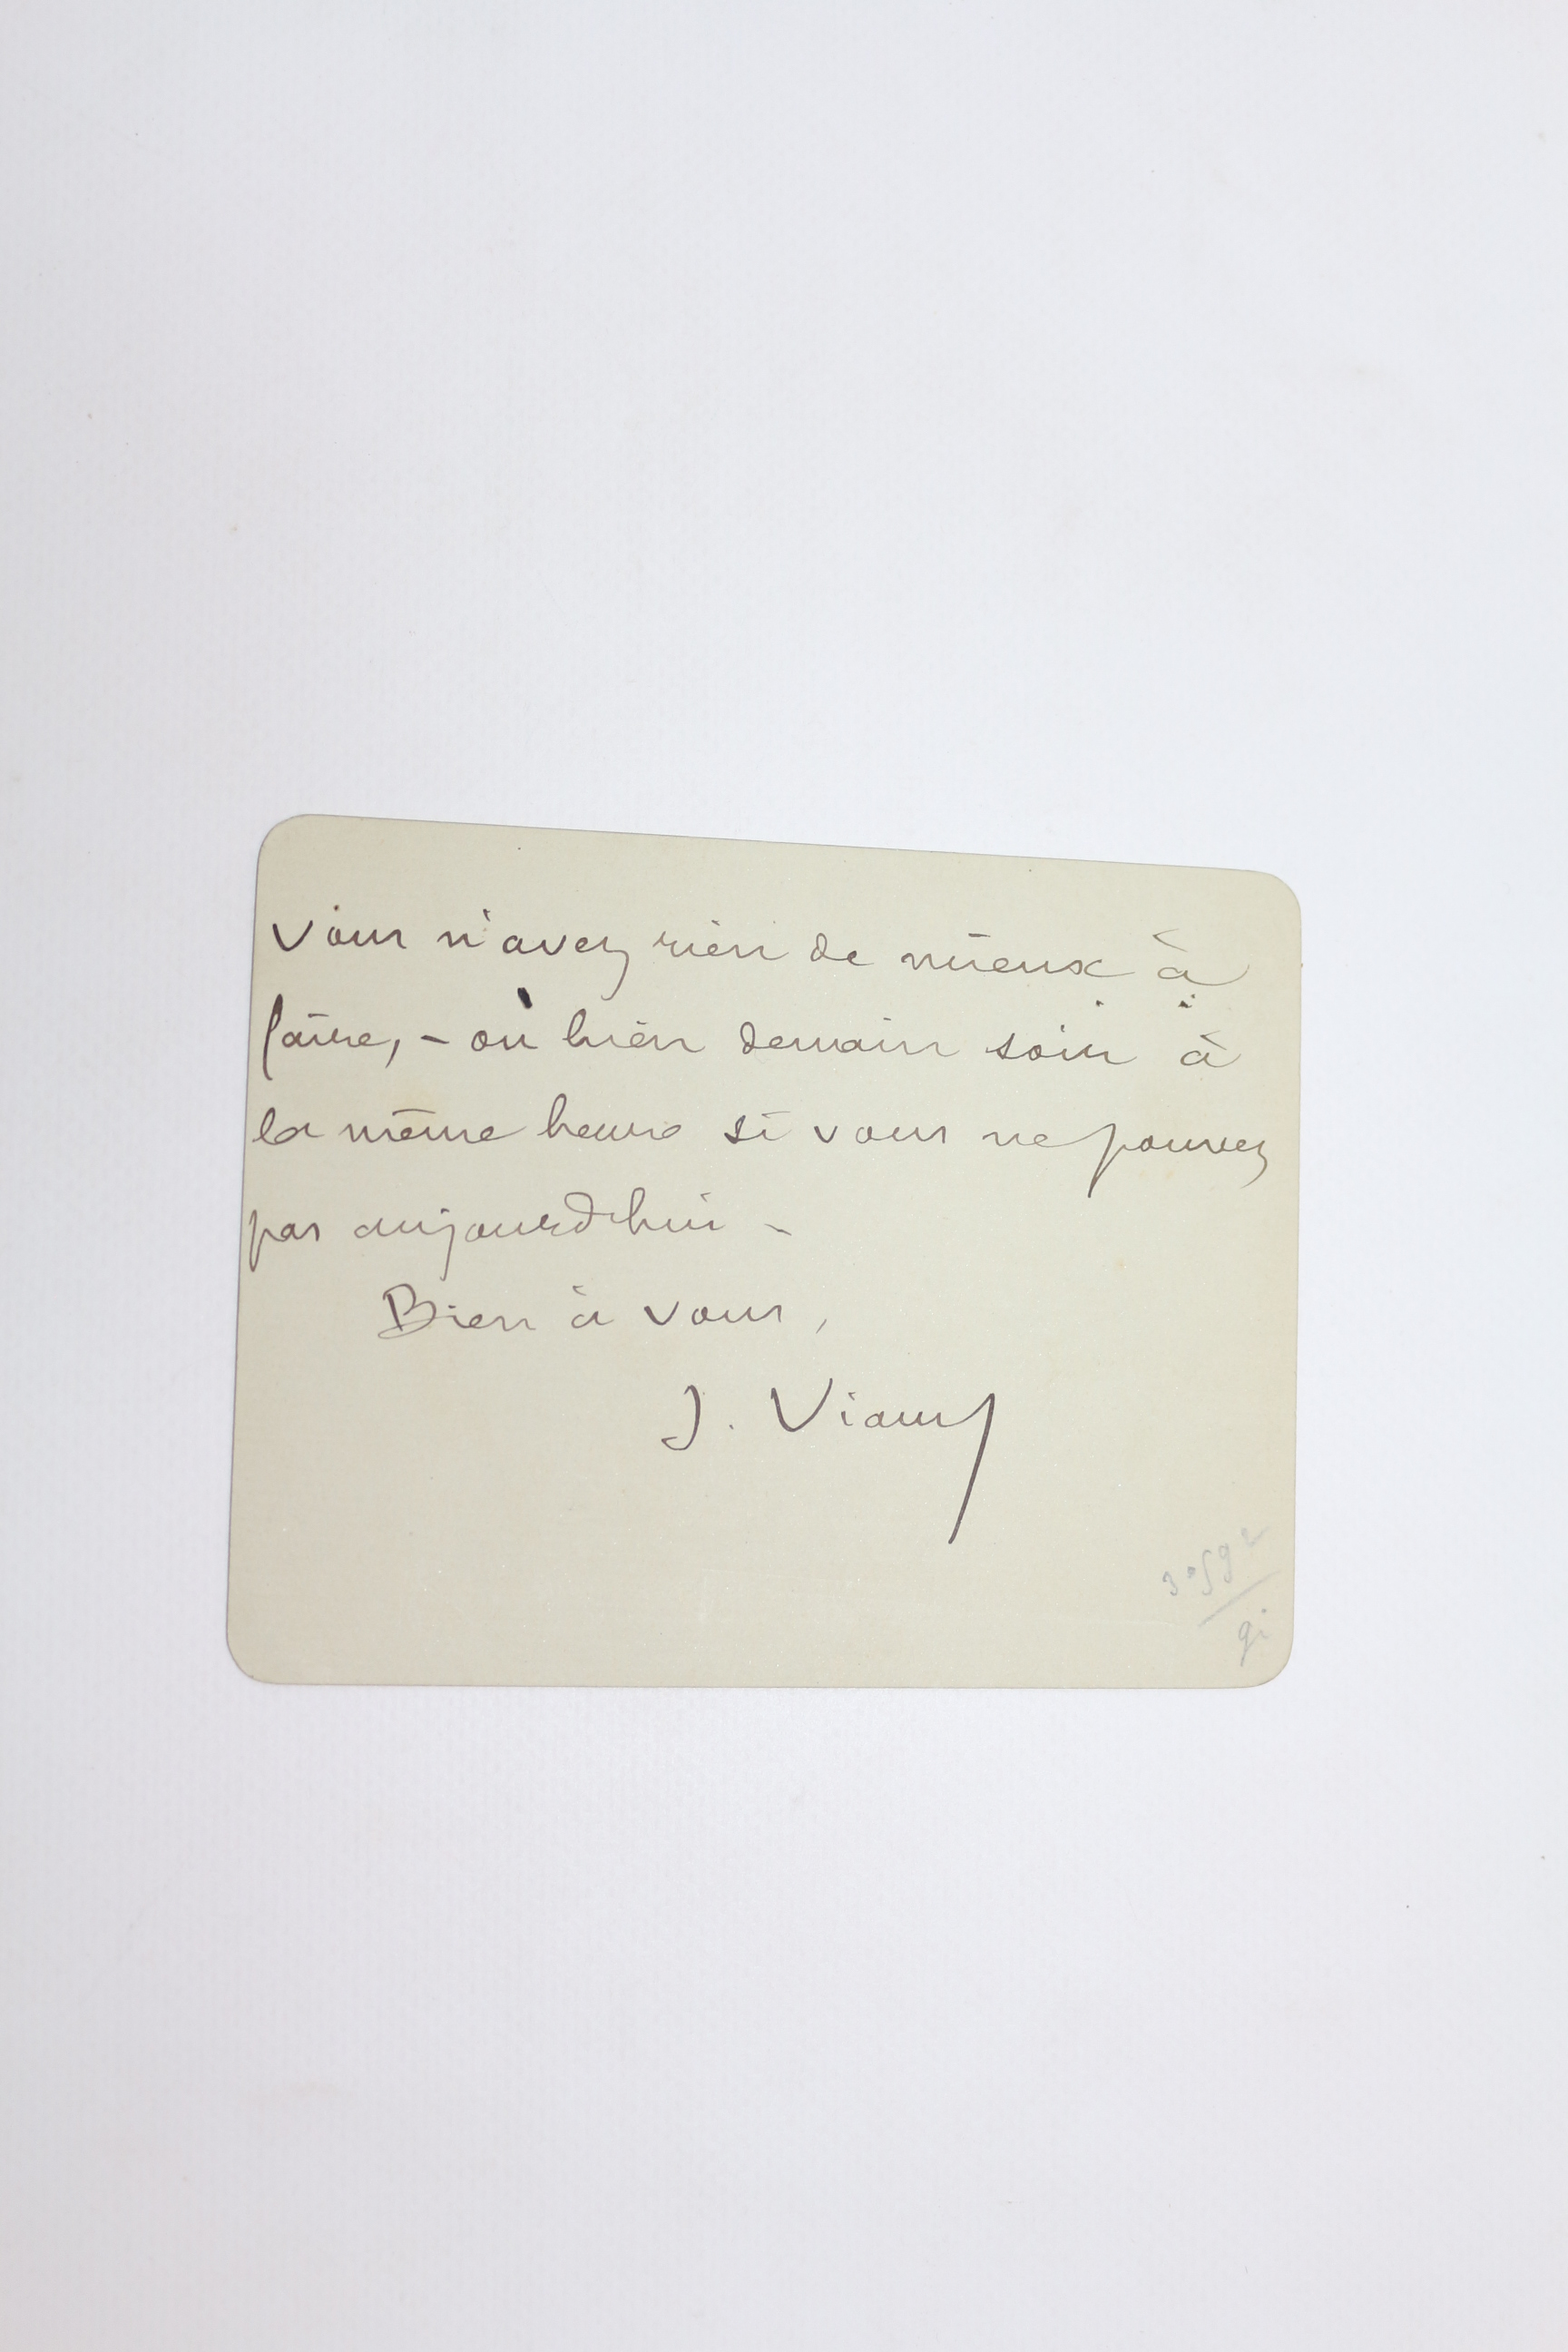 vous n'avez rien de mieux à
faire, - où bien demain soir à
la même heure si vous ne pouvez
pas aujourd'hui -
Bien à vous,
J. Viaud